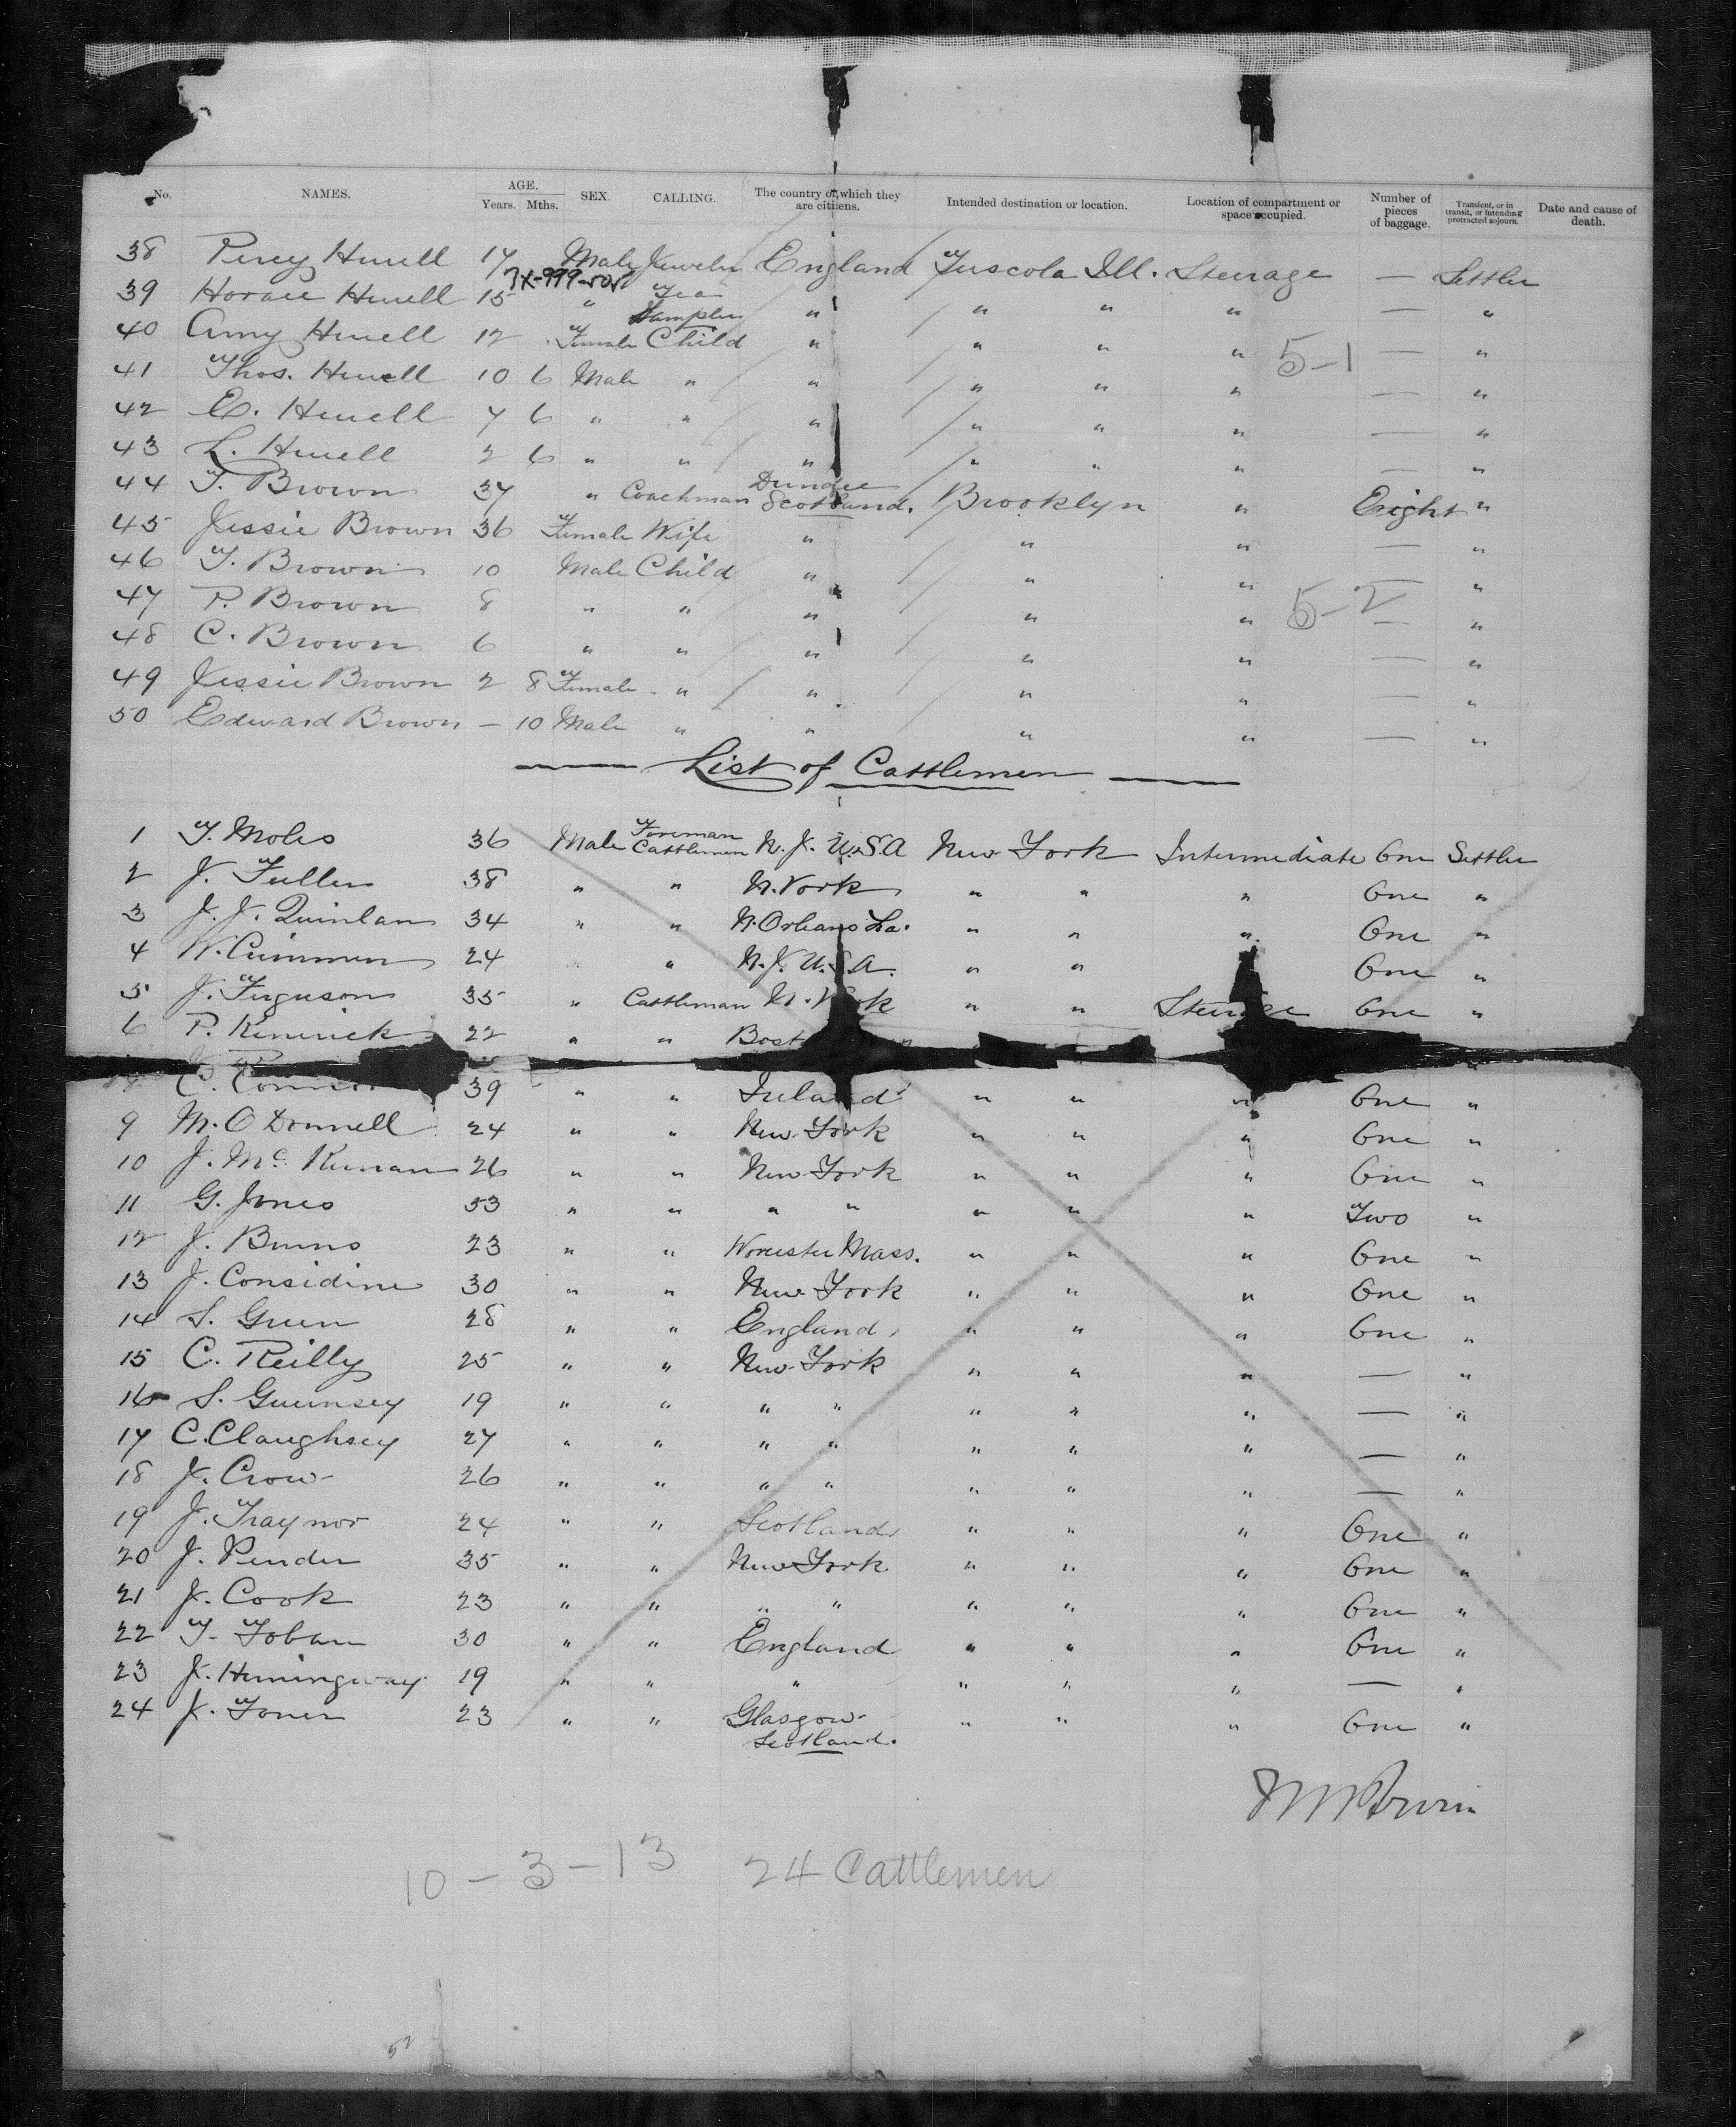 No. NAMES. AGE. Years. Mths. SEX. CALLING. The country of which they are citizens. Intended destination or location. Location of compartment or space occupied. Number of pieces of baggage. Transient, or in transit, or intending protracted sojourn. Date and cause of death.
38 Percy Hewell 17 Male Jeweler England Tuscola Ill. Steerage — Settler
39 Horace Hewell 15 " Tea " " " " — "
40 Amy Hewell 12 Female Child " " " " — "
5-1
41 Thos. Hewell 10 6 Male " " " " " — "
42 E. Hewell 7 6 " " " " " " — "
43 L. Hewell 2 6 " " " " " " — "
44 T. Brown 37 " Coachman Dundee Scotland. Brooklyn " Eight "
45 Jessie Brown 36 Female Wife " " " — "
46 T. Brown 10 Male Child " " " — "
47 P. Brown 8 " " " " " — "
5-2
48 C. Brown 6 " " " " " — "
49 Jessie Brown 2 8 Female " " " " — "
50 Edward Brown — 10 Male " " " " — "
List of Cattlemen
1 T. Moles 36 Male Foreman Cattlemen N.J. U.S.A New York Intermediate One Settler
2 J. Fuller 38 " " N. York " " " One "
3 J. J. Quinlan 34 " " N. Orleans La. " " " One "
4 W. Cummen 24 " N.J. U.S.A. " " One "
5 J. Ferguson 35 " Cattleman N. York " " Steerage One "
6 P. Kenrick 22 " " Bost
C. Connor 39 " " Ireland " " " One "
9 M. O Donnell 24 " " New York " " " One "
10 J. Mc Kernan 26 " " New York " " " One "
11 G. Jones 53 " " " " " " " Two "
12 J. Burns 23 " " Worcester Mass. " " " One "
13 J. Considine 30 " " New York " " " One "
14 S. Green 28 " " England " " " One "
15 C. Reilly 25 " " New York " " " — "
16 S. Guernsey 19 " " " " " " " — "
17 C. Claughsey 27 " " " " " " " — "
18 J. Crow 26 " " " " " " " — "
19 J. Traynor 24 " " Scotland " " " One "
20 J. Pender 35 " " New York " " " One "
21 J. Cook 23 " " " " " " " One "
22 T. Toban 30 " " England " " " One "
23 J. Hemingway 19 " " " " " " — "
24 J. Toner 23 " " Glasgow Scotland. " " " One "
10-3-13 24 Cattlemen
52